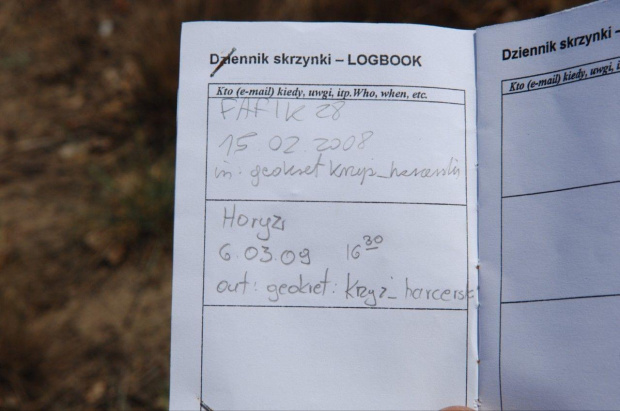 Dziennik skrzynki – LOGBOOK
Kto (e-mail) kiedy, uwgi, itp.Who, when, etc.
FAFIK 28
15 02 2008
in: geokret Krzyż_harcerski
Horyzi
6.03.09 16 30
out: geokret: Krzyż_harcersk
Dziennik skrzynki –
Kto (e-mail) kiedy, uwgi, i